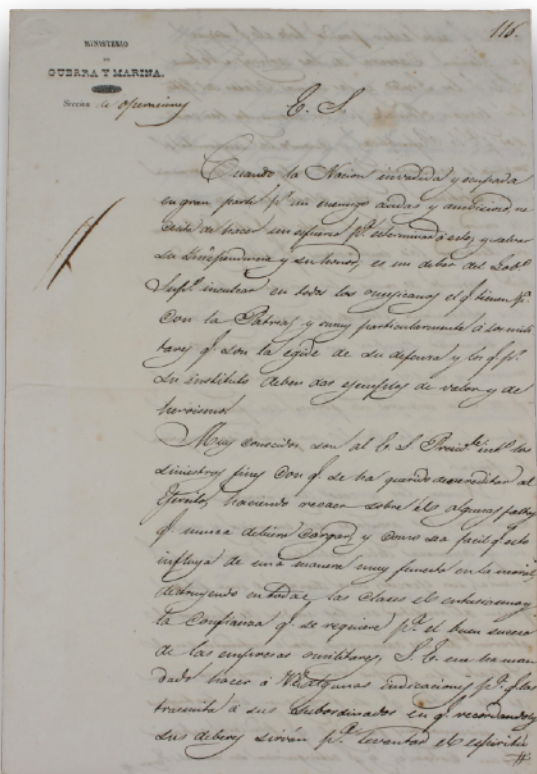 116.
MINISTERIO
DE
GUERRA Y MARINA.
Seccion de operaciones
E. S.
Cuando la Nacion invadida y ocupada
en gran parte pr. un enemigo audas y ambicioso, ne
cesita de hacer un esfuerzo pa. esterminar á este, y salvar
su Independencia y su honor, es un deber del Gobo.
Supo. inculcar en todos los mexicanos el q. tienen pa.
con la Patria, y muy particularmente á los mili
tares q. son la egide de su defensa y los q. pr.
su instituto deben dar ejemplos de valor y de
heroismo.
Muy conocidos son al E. S. Presidte. into. los
siniestros fines con q. se ha querido desacreditar al
Ejercito, haciendo recaer sobre él algunas faltas
q. nunca debiera cargar, y como sea facil q. esto
influya de una manera muy funesta en la moral,
destruyendo en todas las clases el entusiasmo y
la confianza q. se requiere pa. el buen suceso
de las empresas militares, S. E. me ha man
dado hacer á VE. algunas indicaciones pa. q. las
trasmita á sus subordinados en q. recordandoles
sus deberes sirvan pa. levantar el espiritu